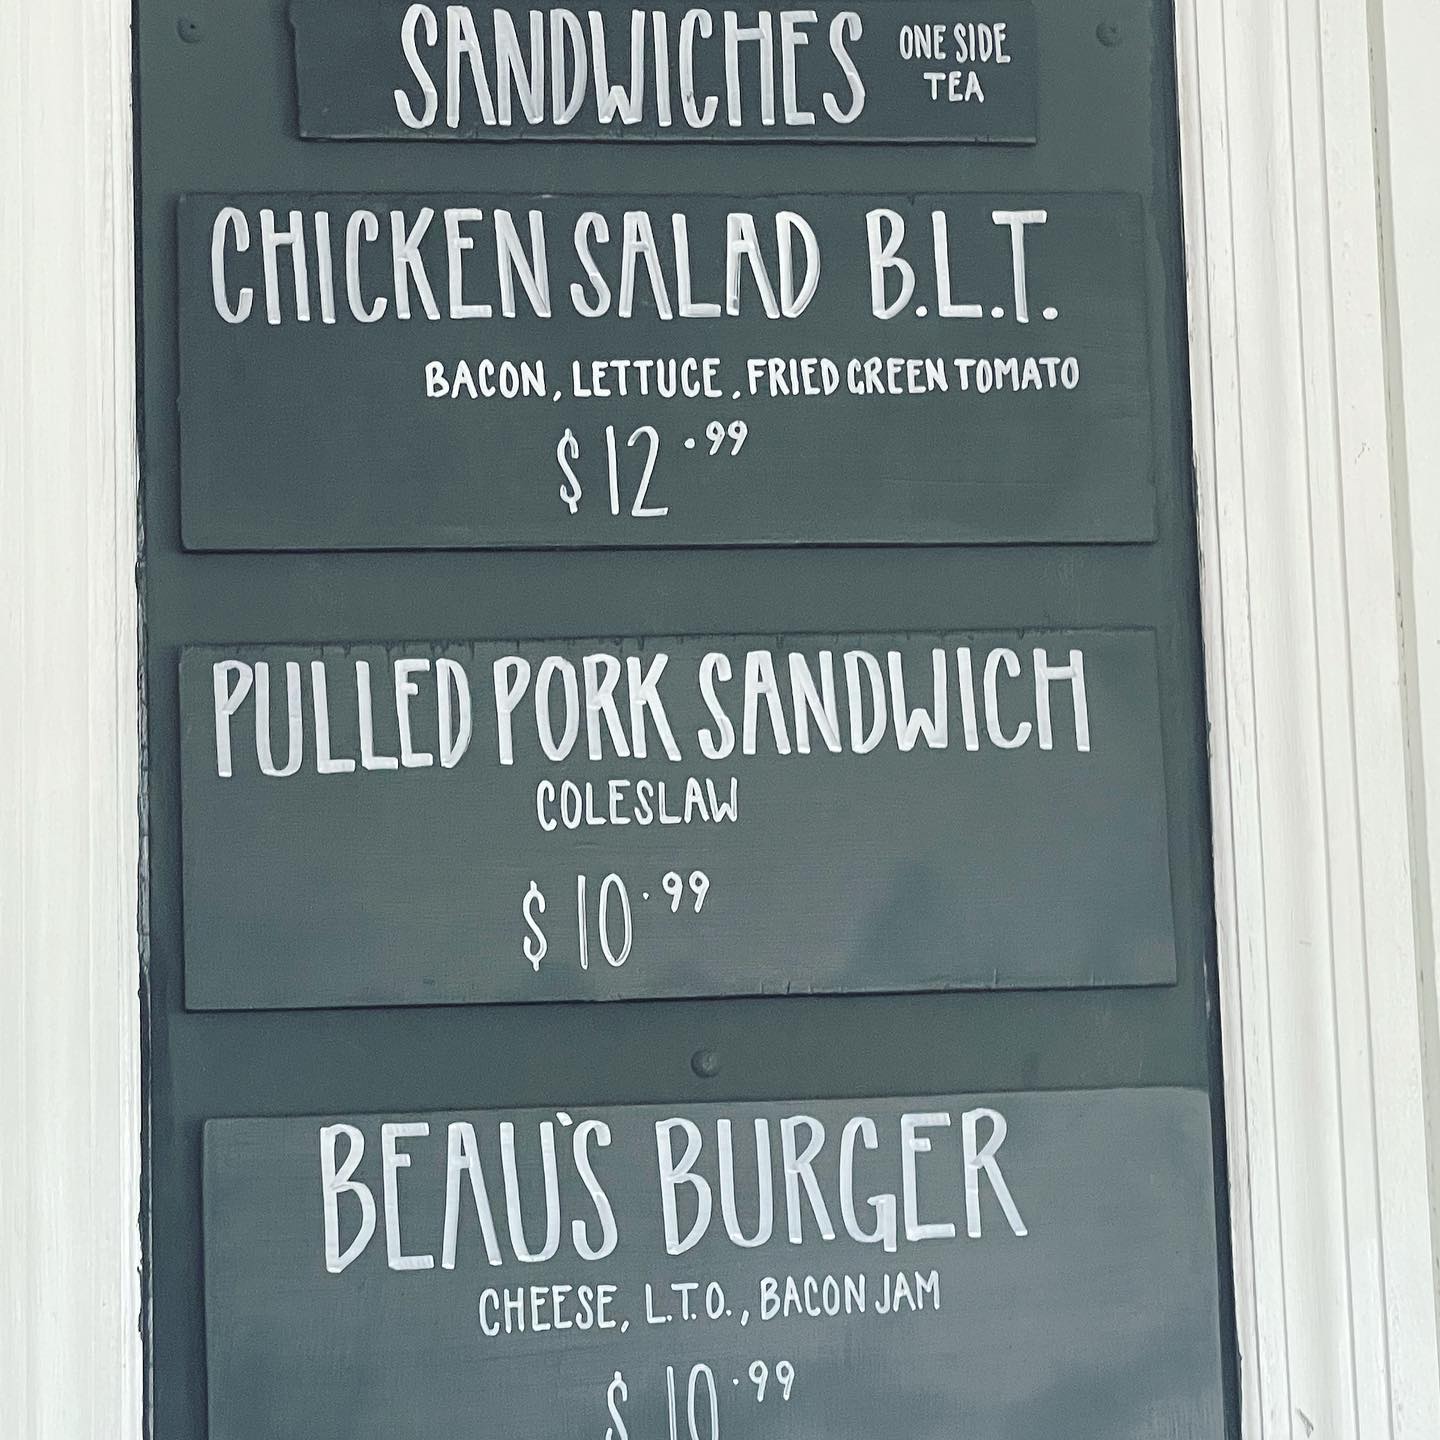 SANDWICHES
ONE SIDE
TEA
CHICKEN SALAD B.L.T.
BACON, LETTUCE, FRIED GREEN TOMATO
$12.99
PULLED PORK SANDWICH
COLESLAW
$10.99
BEAU'S BURGER
CHEESE, L.T.O., BACON JAM
$10.99